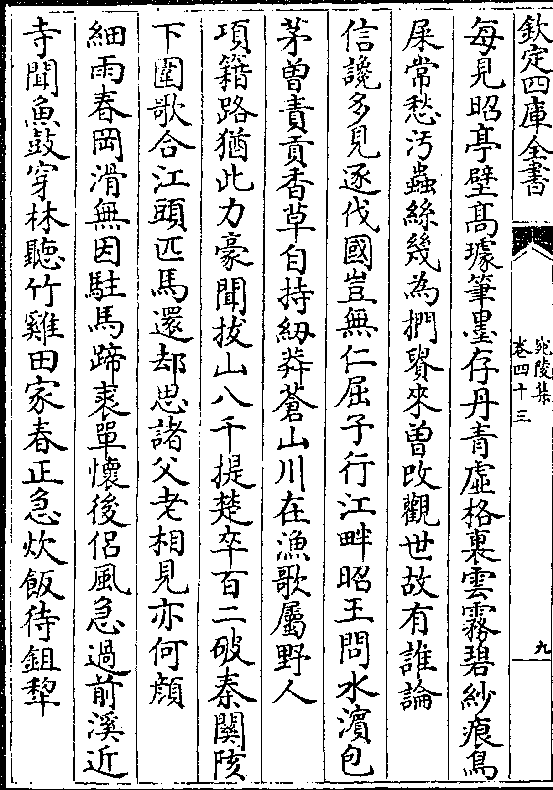 欽定四庫全書
宛陵集
卷四十三
九
每見昭亭壁髙璩筆墨存丹青虛格裏雲霧碧紗痕鳥
屎常愁汚蟲絲幾為捫賢來曽改觀世故有誰論
信讒多見逐伐國豈無仁屈子行江畔昭王問水濵包
茅曽責貢香草自持紉莽蒼山川在漁歌屬野人
項籍路猶此力豪聞拔山八千提楚卒百二破秦關陔
下圍歌合江頭匹馬還却思諸父老相見亦何顔
細雨春岡滑無因駐馬蹄裘單懐後侶風急過前溪近
寺聞魚鼓穿林聽竹雞田家春正急炊飯待鉏犂